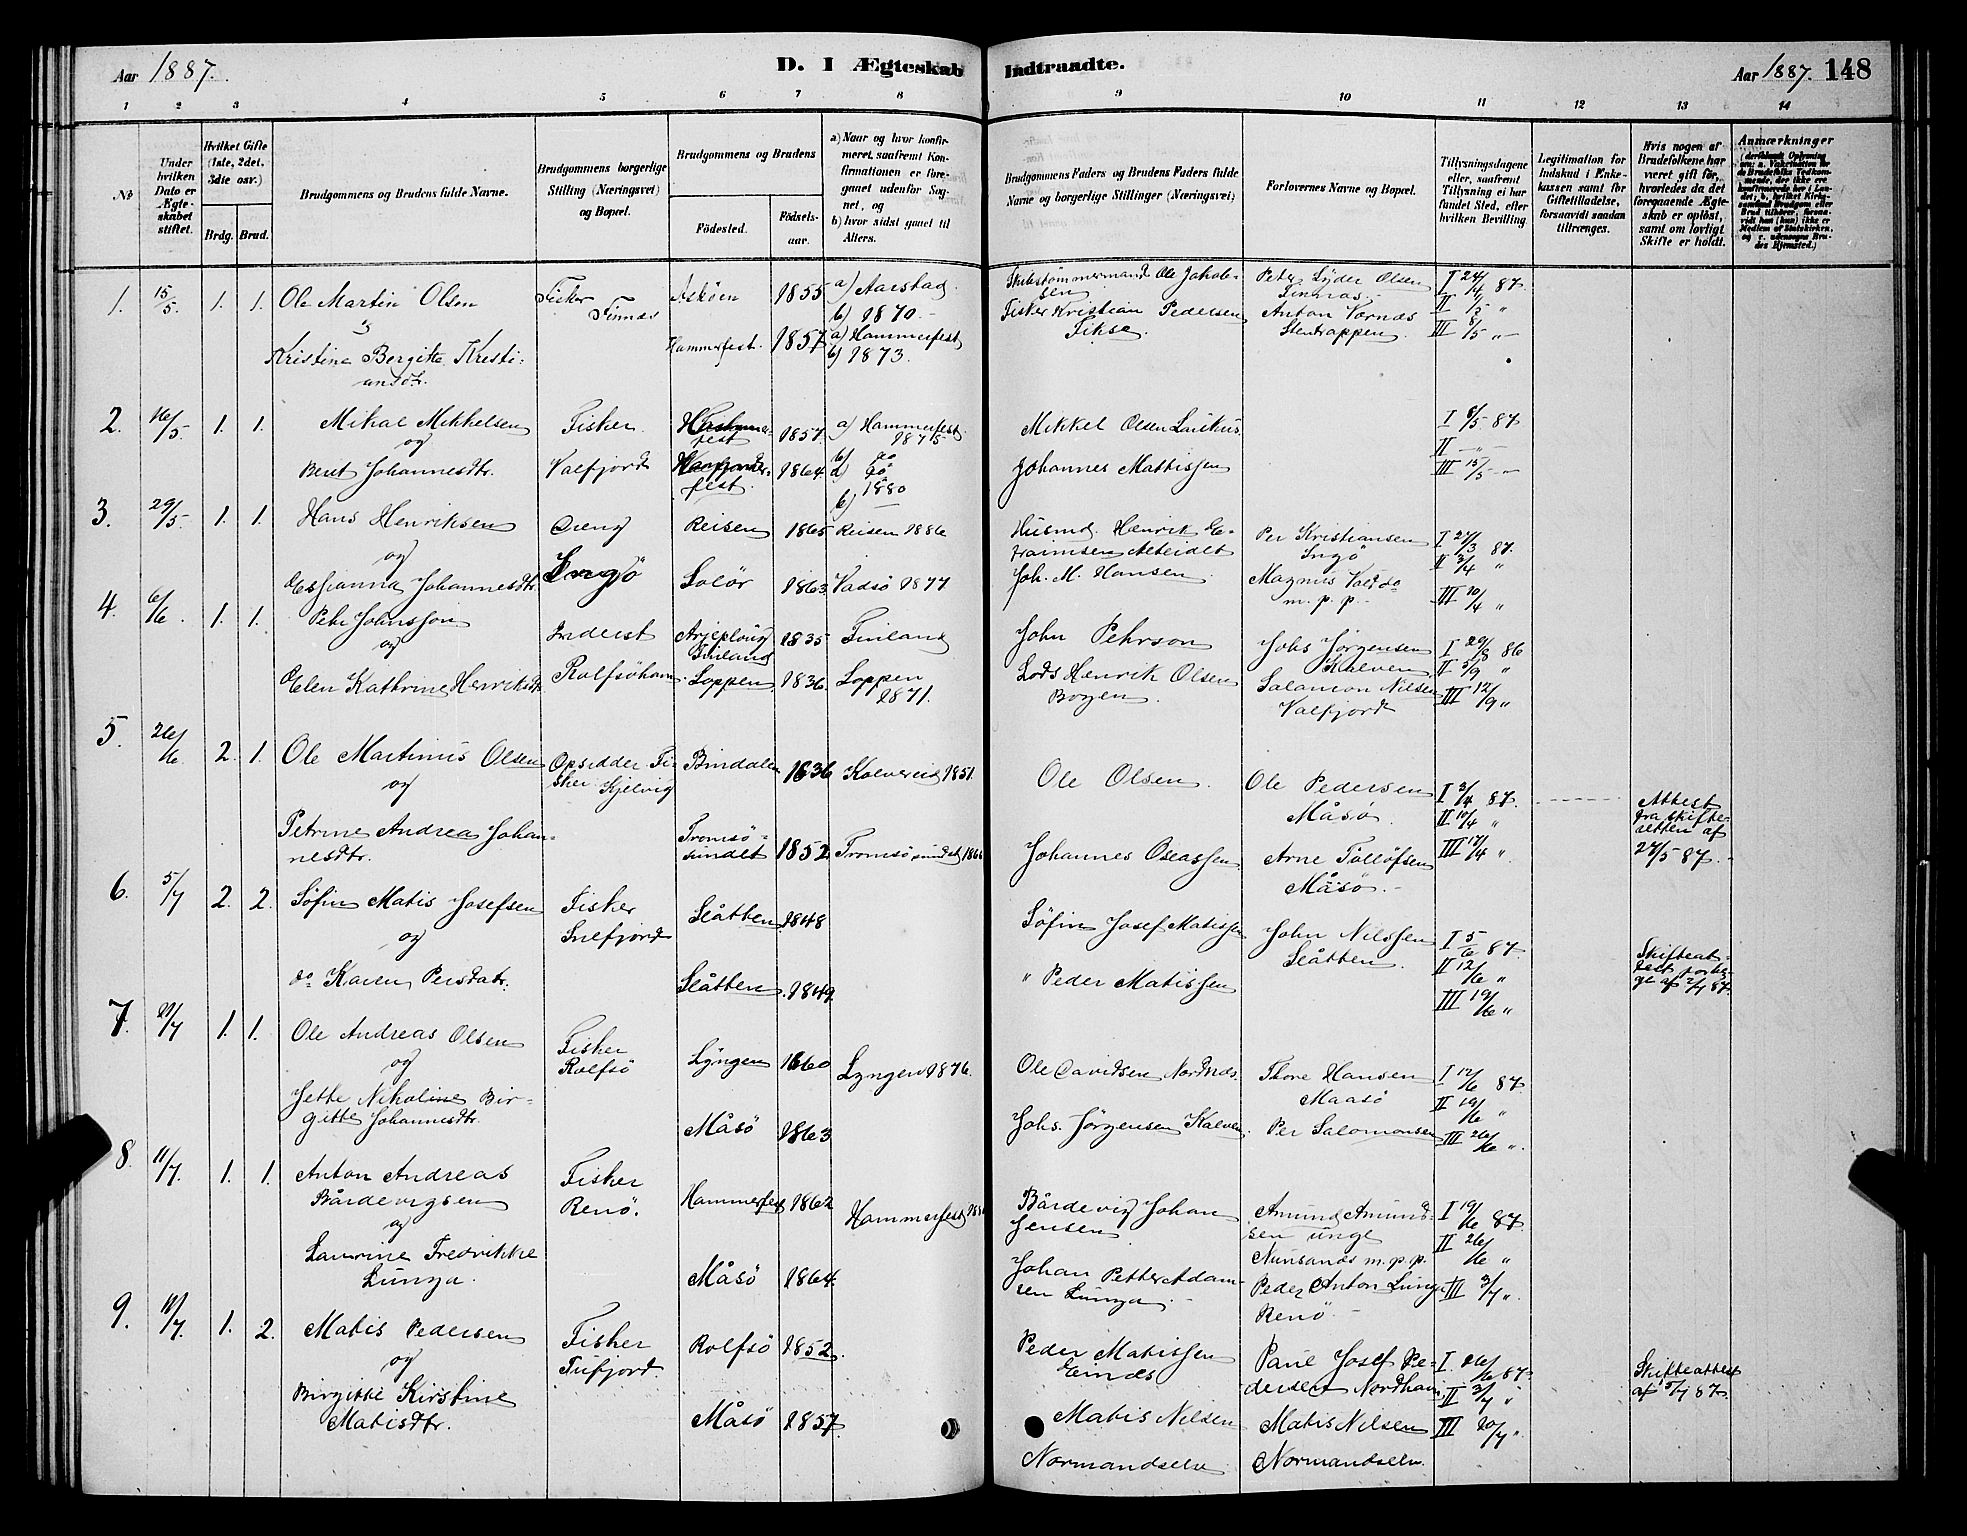 Aar 1887.
D. I Ægteskab
Indtraadte.
Aar 1887. 148
1 2 3 4 5 6 7 8
9 10 11 12 13 14
№
Under hvilken Dato er Ægteskabet stiftet.
Hvilket Gifte (1ste, 2det, 3die osv.)
Brdg. Brud.
Brudgommens og Brudens fulde Navne.
Brudgommens borgerlige Stilling (Næringsvei) og Bopæl.
Brudgommens og Brudens
Fødested.
Fødselsaar.
a) Naar og hvor konfirmeret, saafremt Konfirmationen er foregaaet udenfor Sognet, og
b) hvor sidst gaaet til Alters.
Brudgommens Faders og Brudens Faders fulde Navne og borgerlige Stillinger (Næringsvei)
Forlovernes Navne og Bopæl.
Tillysningsdagene eller, saafremt Tillysning ei har fundet Sted, efter hvilken Bevilling.
Legitimation for Indskud i Enkekassen samt for Giftetilladelse, forsaavidt saadan tiltrænges.
Hvis nogen af Brudefolkene har været gift før, hvorledes da det foregaaende Ægteskab er opløst, samt om lovligt Skifte er holdt.
Anmærkninger
1. 15/5 1. 1. Ole Martin Olsen
Fisker
Finnæs
Askøen 1855 a) Aarstad.
b) 1870.
Skibstømmermand Ole Jakobsen
Peder Lyder Olsen
Finnæs
I 24/4 87.
Kristine Bergitte Kristiansdtr.
Hammerfest. 1857 a) Hammerfest
b) 1873.
Fisker Kristian Pedersen
Anton Værnæs
Stentrappen
II 1/5 "
III 8/5 "
2. 16/5. 1. 1. Mikal Mikkelsen
og
Berit Johannesdtr.
Fisker
Valfjord
1857. a) Hammerfest
1875
1864.
1880
Mikkel Olsen
Johannes Mattissen
I 8/5 87
II - " -
III 15/5 - "
3. 29/5. 1. 1. Hans Henriksen
og
Johannesdtr.
Dreng
Ingö
Reisen 1865 Reisen 1886
Solör 1863 Vadsö 1877
Husmd. Henrik
Joh. M. Hansen
Per Kristiansen
Ingö
Magnus
m. p. p.
I 27/3 87.
II 3/4 "
III 10/4 "
4. 6/6. 1. 1. Petr Johnsson
og
Elen Kathrine Henriksdtr
Inderst
Rolfsöhavn
Arjeploug
Finland
1835 Finland
Loppen 1836. Loppen
1871.
John Pehrson
Lods Henrik Olsen
Bogen
Johs Jörgensen
Kalven
Salamon Nilsen
Valfjord
I 29/8 86
II 5/9 "
III 12/9 "
5. 26/6 2. 1. Ole Martinus Olsen
og
Petrine Andrea Johannesdtr.
Opsidder Fisker Kjelvig
Bindalen 1836 Kolvereid 1851.
Tromsösundet 1852 Tromsösundet
Ole Olsen.
Johannes Oseassen
Ole Pedersen
Måsö.
Arne Tolløfsen
Måsö.
I 3/4 87.
II 10/4 "
III 17/4 "
Attest
fra skifteretten af
27/5 87.
6. 5/7 2. 2. Söfin Matis Josefsen
og
do Karen Persdatr.
Fisker
Snefjord
Slåtten 1848
Slåtten. 1849
Söfin Josef Matissen
" Peder Matissen
John Nilssen
Slåtten.
I 5/6 87.
II 12/6 "
III 19/6 "
7. 1. 1. Ole Andreas Olsen
og
Jette Nikoline Birgitte Johannesdtr.
Fisker
Rolfsö
Lyngen 1860 Lyngen 1876.
Måsö 1863
Ole Davidsen Nordnæs.
Johs. Jörgensen Kalven.
Thore Hansen
Maasö
Per Salomonsen
I 12/6 87.
II 19/6 "
III 26/6 ".
8. 11/7. 1. 1. Anton Andreas
Bårdevigsen
og
Laurine Fredrikke
Lunga.
Fisker
Renö.
Hammerfest 1862 Hammerfest
Måsö 1864.
Bårdevig Johan
Jensen
Johan Petter Adamsen Lunga
Amund Amundsen unge
m.p.p.
Peder Anton Lunga
Renö
I 19/6 87.
II 26/6 "
III 3/7 ".
9. 1. 2. Matis Pedersen
og
Birgitte Kirstine
Matisdtr.
Fisker
Tufjord.
Rolfsö 1852.
Måsö 1857.
Peder Matissen
Matis Nilsen
Normandselv
Paul Josef Pedersen Nordhavn
Matis Nilsen
Normandselv.
I. 26/6 87.
II 3/7 "
III 10/7 ".
Skifteattest
af 5/7 87.